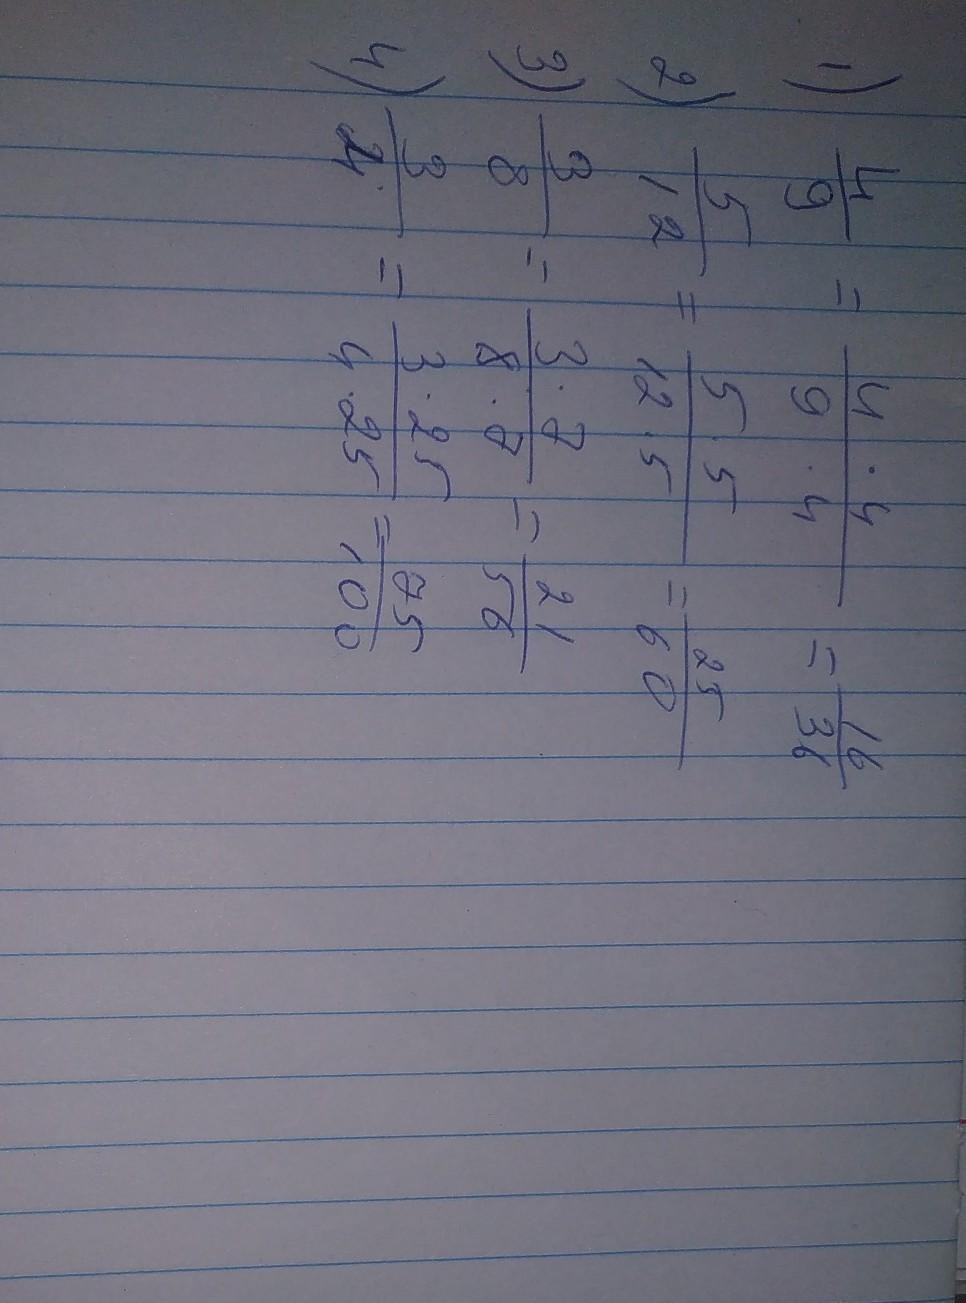 1) 4/9 = 4·4/9·4 = 16/36
2) 5/12 = 5·5/12·5 = 25/60
3) 3/8 = 3·7/8·7 = 21/56
4) 3/4 = 3·25/4·25 = 75/100